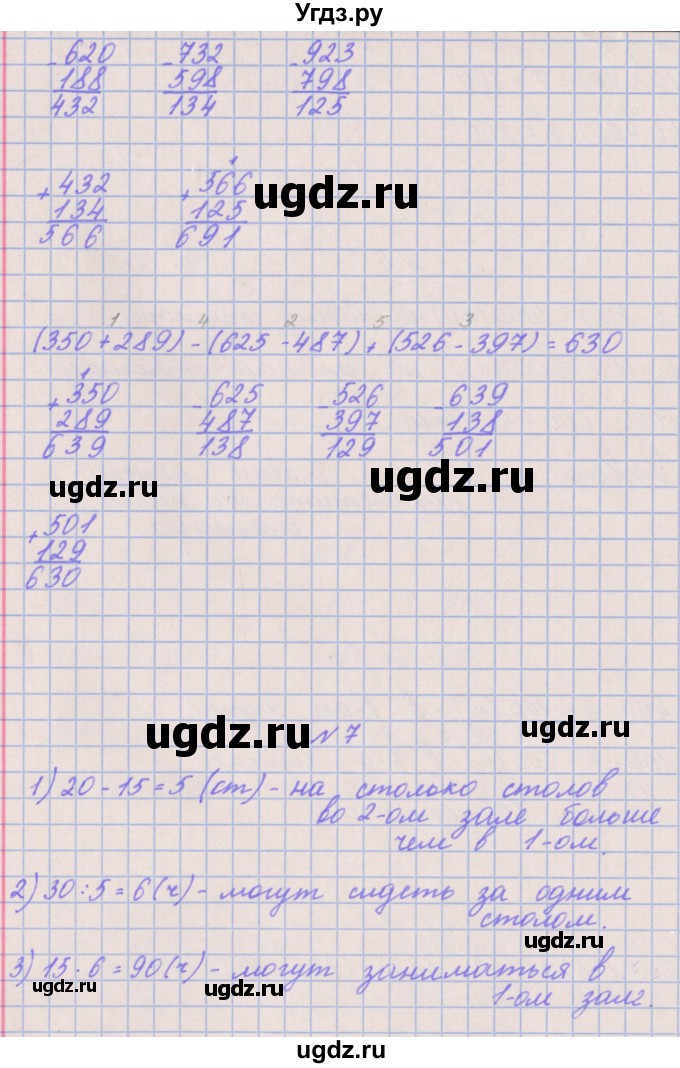 Угдз.ру
- 620 - 732 - 923
188 598 798
432 134 125
1
+ 432 + 566
134 125
566 691
ugdz.ru
1 4 2 5 3
(350+289)-(625-487)+(526-397)=630
1
+ 350 - 625 - 526 - 639
289 487 397 138
639 138 129 501
ugdz.ru ugdz.ru
+ 501
129
630
ugdz.ru №7 ugdz.ru
1) 20-15=5 (ст) - на столько столов
во 2-ом зале больше
чем в 1-ом.
2) 30:5=6(ч) - могут сидеть за одним
столом.
ugdz.ru
3) 15·6=90(ч) - могут заниматься в
ugdz.ru ugdz.ru
1-ом зале.
ugdz.ru